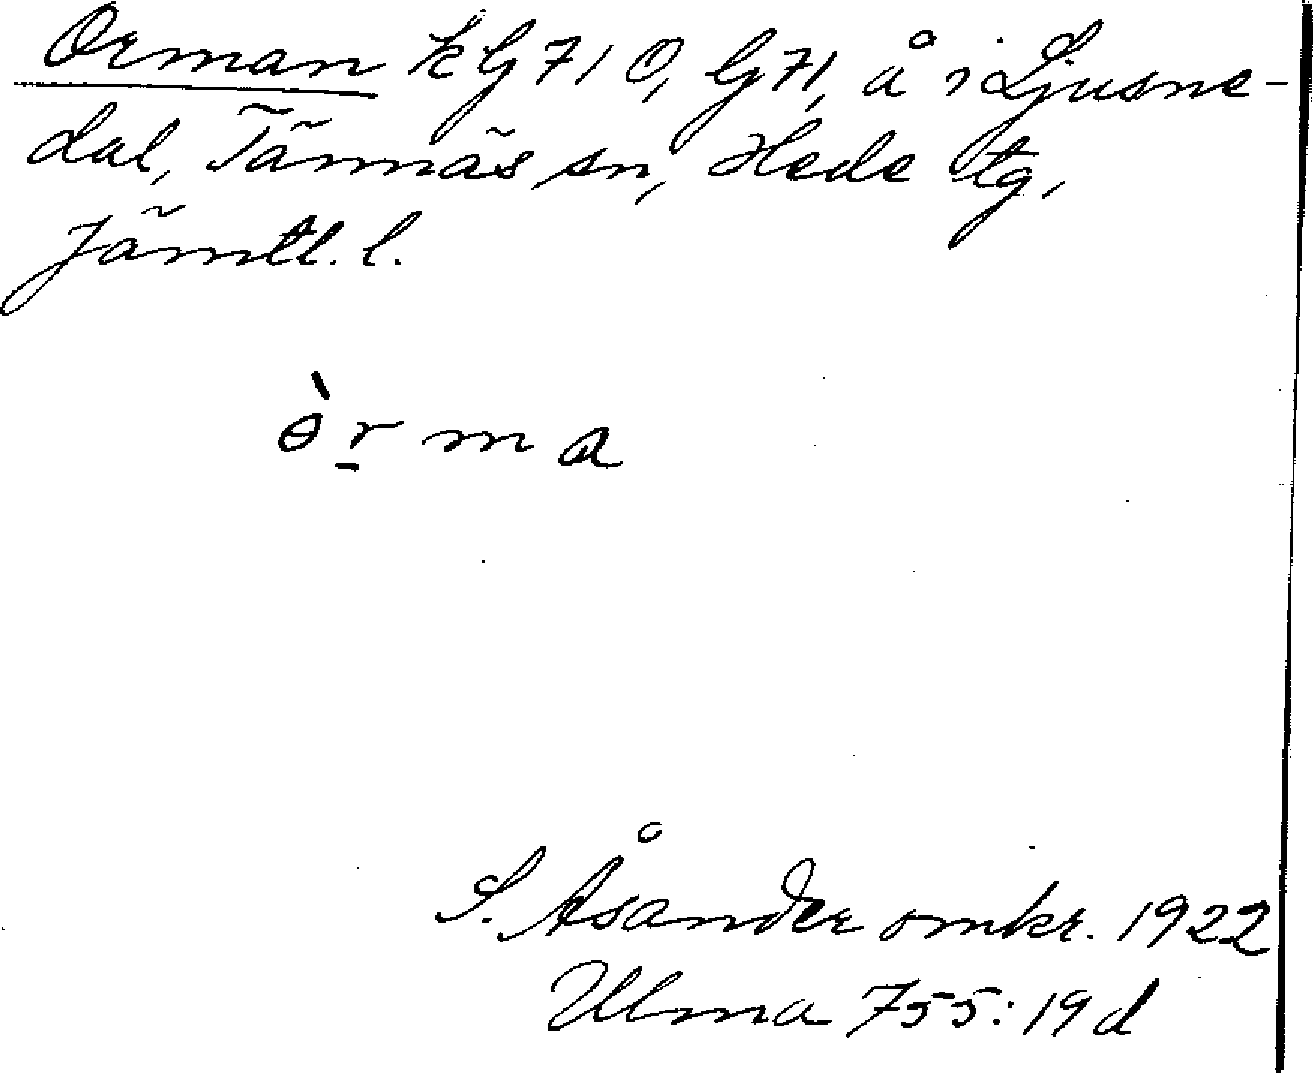 Orman kG 71 O, G 71, å i Ljusne-
dal, Tännäs sn, Hede tg,
Jämtl. l.
ɵ̀r̲ma
S. Åsander omkr. 1922
Ulma 755: 19 d